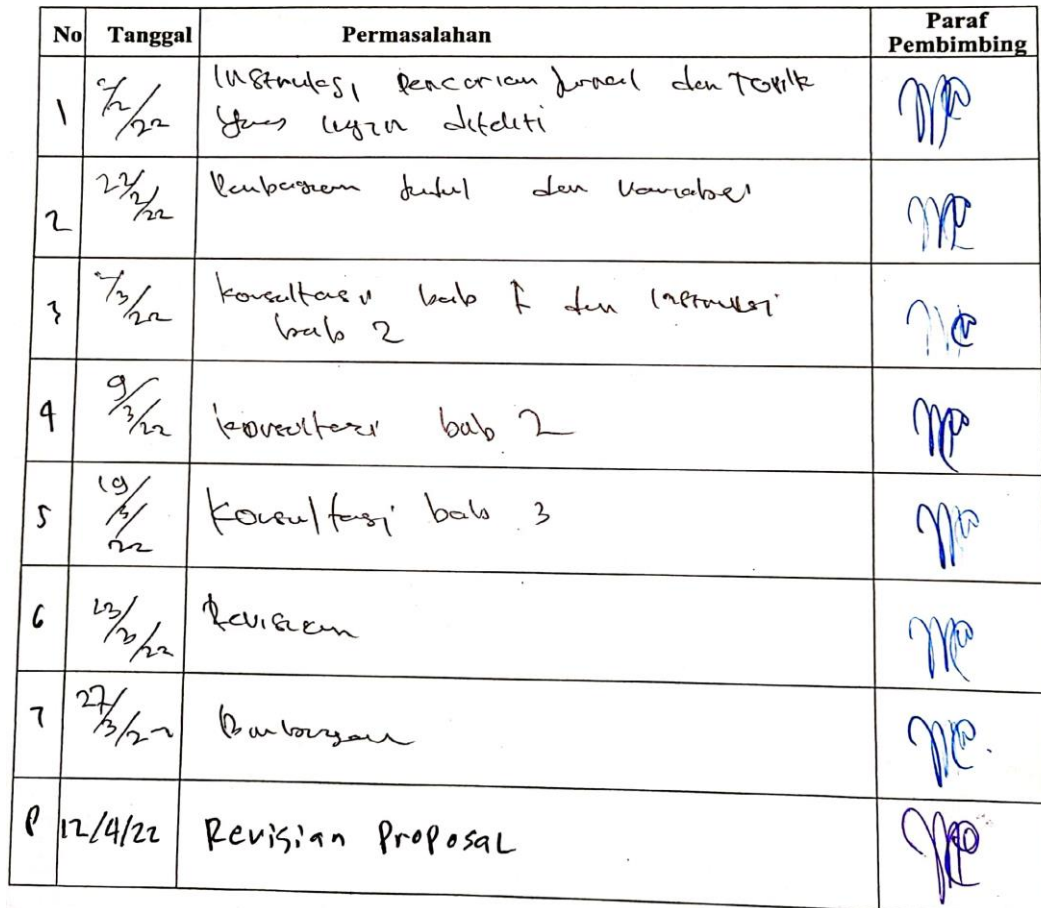 No Tanggal Permasalahan Paraf Pembimbing
1 7/2/22 Instruksi, Pencarian Jurnal dan Topik
yang ingin diteliti
2 22/2/22 judul dan variabel
3 7/3/22 konsultasi bab 1 dan instruksi
bab 2
4 9/3/22 konsultasi bab 2
5 19/3/22 konsultasi bab 3
6 23/3/22 Revisian
7 27/3/22 Bimbingan
8 12/4/22 Revisian Proposal